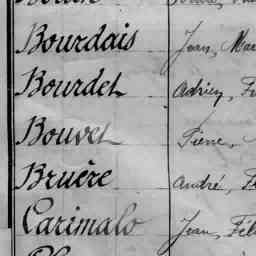 Bourdais Jean, Mar
Bourdet Adrien, F
Bouvet Pierre,
Bruère André, F
Carimalo Jean, Fél